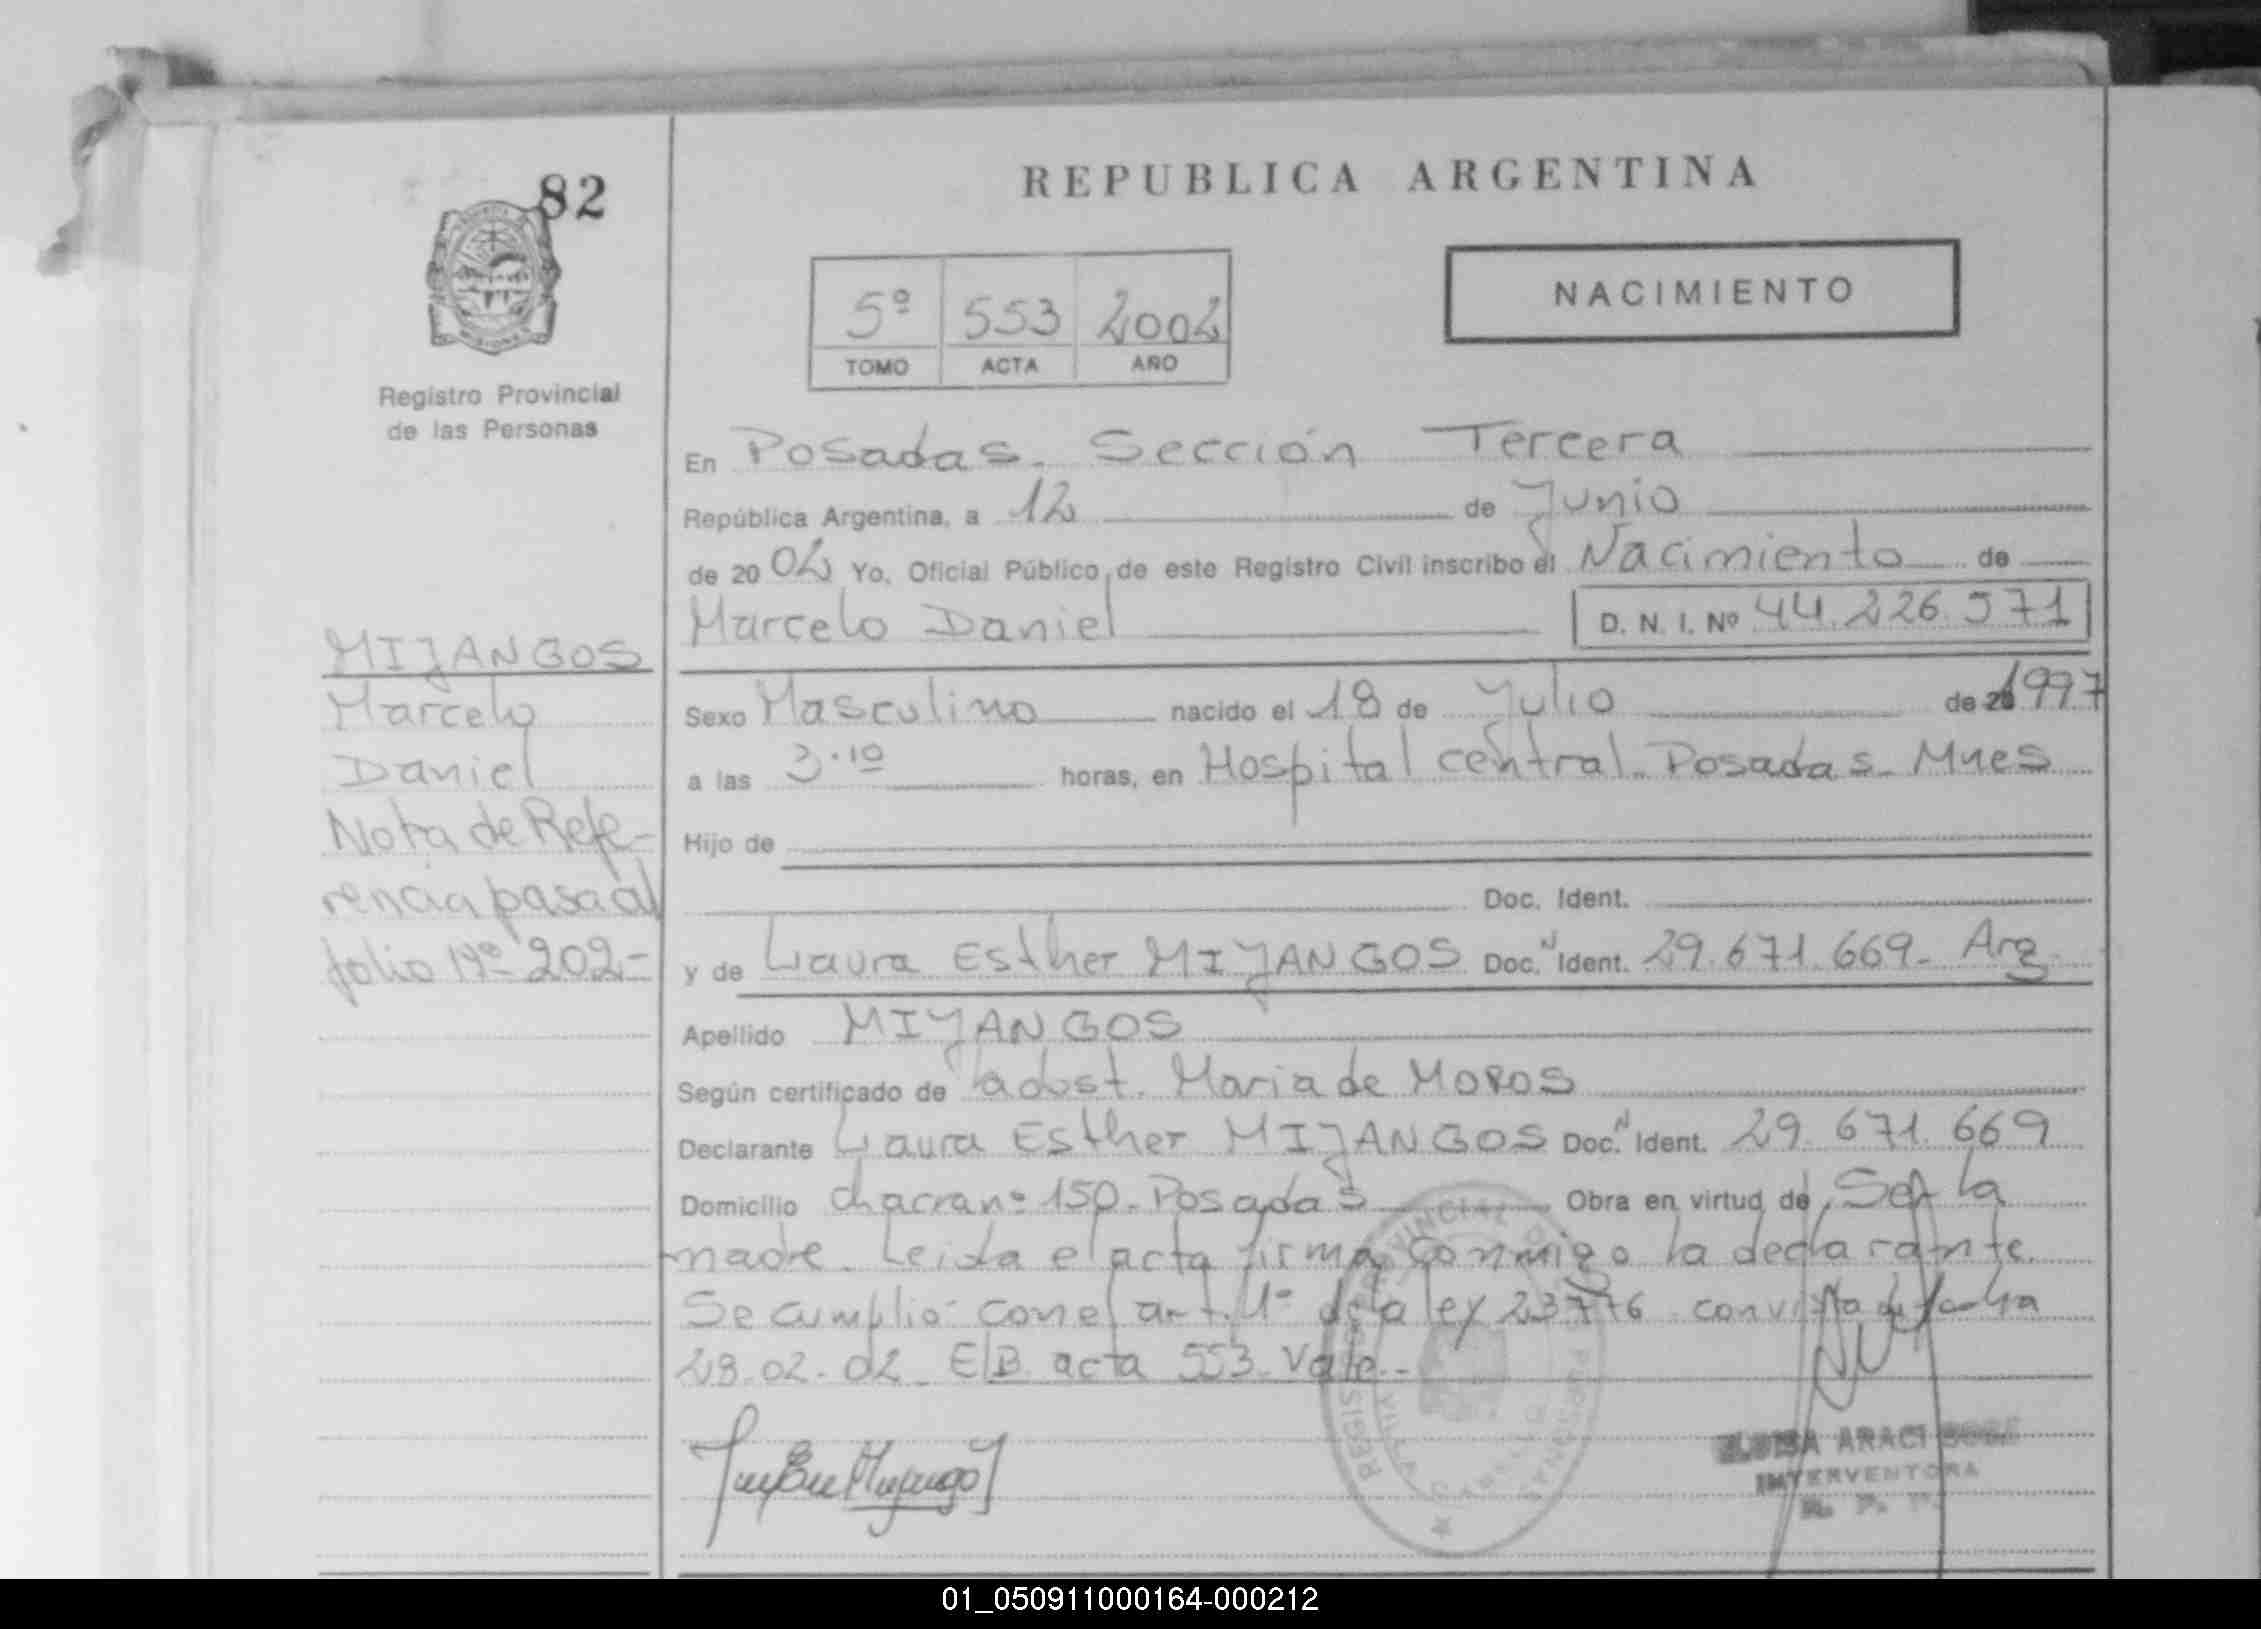 82
REPUBLICA ARGENTINA
NACIMIENTO
5º 553 2002
TOMO ACTA AÑO
Registro Provincial
de las Personas
En Posadas. Sección Tercera
República Argentina, a 12 de Junio
de 2002 Yo, Oficial Público de este Registro Civil inscribo el Nacimiento de
Marcelo Daniel D. N. I. Nº 44.226.971
MIJANGOS
Marcelo
Daniel
Nota de Refe-
rencia pasa al
folio Nº 202-
Sexo Masculino nacido el 18 de Julio de 1997
a las 3.10 horas, en Hospital central. Posadas. Mnes
Hijo de
Doc. Ident.
y de Laura Esther MIJANGOS Doc. N Ident. 29.671.669. Arg.
Apellido MIJANGOS
Según certificado de adost. Maria de MOROS
Declarante Laura Esther MIJANGOS Doc. N Ident. 29.671.669
Domicilio chacra nº 150. Posadas Obra en virtud de Ser la
madre. Leida el acta firma conmigo la declarante.
Se cumplio con el art. 1º de la ley 23776 con vista de fecha
28.02.02. E/B acta 553. Vale.-
ARACI
INTERVENTORA
01_050911000164-000212